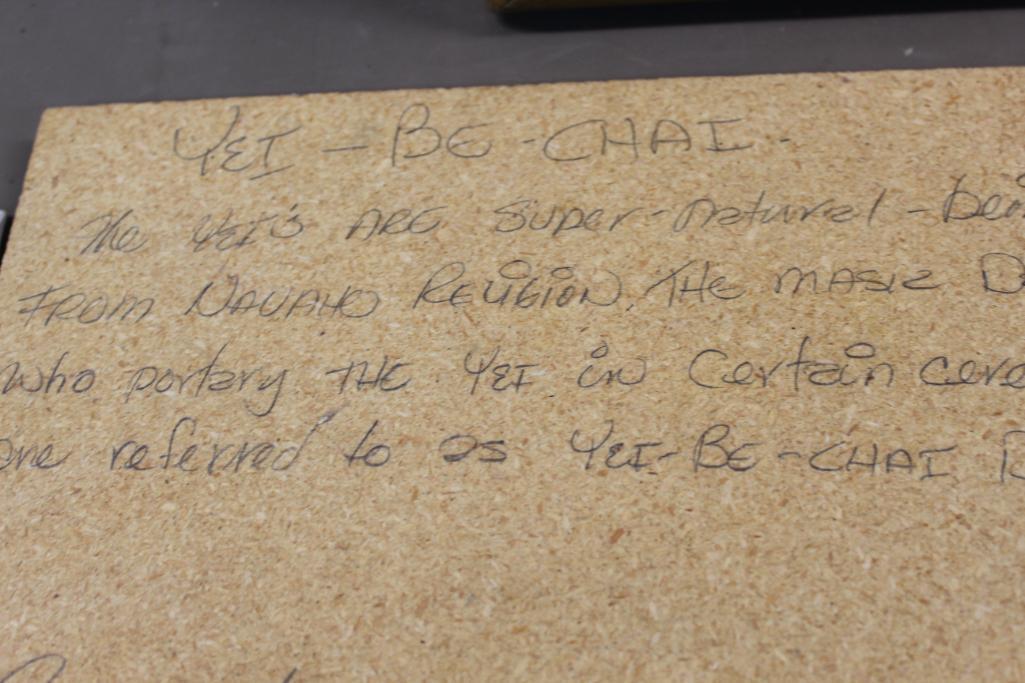 YEI - BE - CHAI -
The YEI'S ARE Super-natural - bei
FROM NAVAHO RELIGION. THE MASK D
who portary THE YEI in Certain cere
are referred to as YEI-BE-CHAI